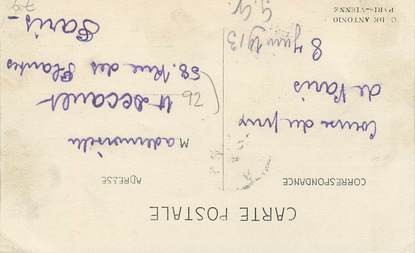 CARTE POSTALE
CORRESPONDANCE
ADRESSE
Course du Prix
de Paris
8 Juin 1913
Mademoiselle
58. Rue des Plantes
Paris
92
C. DE ANTONIO
PARI-VIENNE